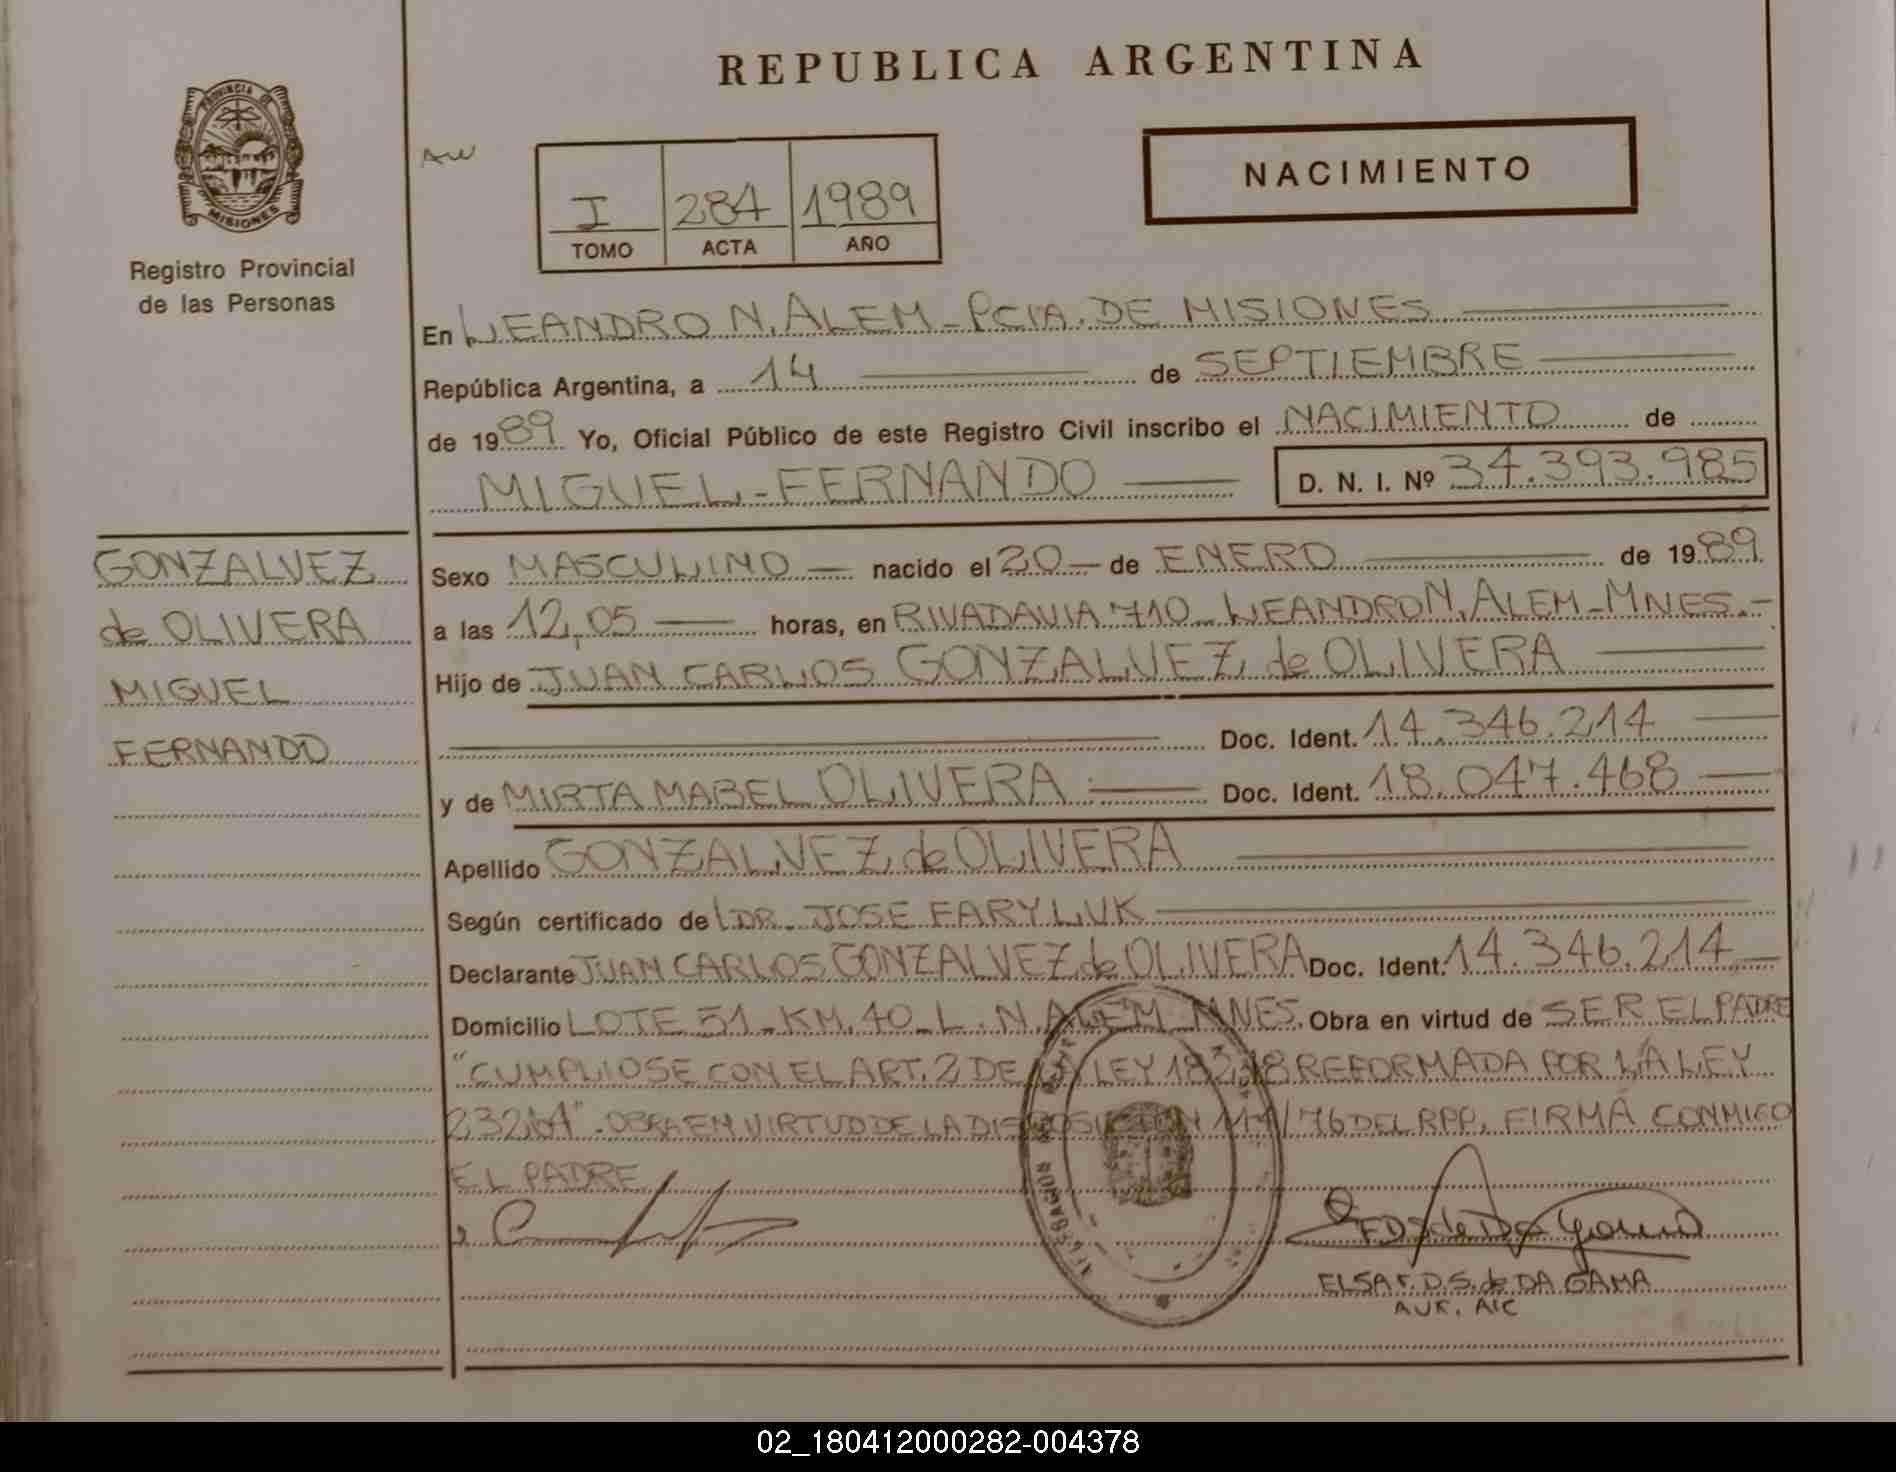 REPUBLICA ARGENTINA
PROVINCIA DE
MISIONES
Registro Provincial
de las Personas
AW
I 284 1989
TOMO ACTA AÑO
NACIMIENTO
En LEANDRO N. ALEM - PCIA. DE MISIONES
República Argentina, a 14 de SEPTIEMBRE
de 1989 Yo, Oficial Público de este Registro Civil inscribo el NACIMIENTO de
MIGUEL - FERNANDO D. N. I. Nº 34.393.985
GONZALVEZ
de OLIVERA
MIGUEL
FERNANDO
Sexo MASCULINO nacido el 20 de ENERO de 1989
a las 12,05 horas, en RIVADAVIA 710 - LEANDRO N. ALEM - MNES.-
Hijo de JUAN CARLOS GONZALVEZ de OLIVERA
Doc. Ident. 14.346.214
y de MIRTA MABEL OLIVERA Doc. Ident. 18.047.468
Apellido GONZALVEZ de OLIVERA
Según certificado de DR. JOSE FARYLUK
Declarante JUAN CARLOS GONZALVEZ de OLIVERA Doc. Ident. 14.346.214
Domicilio LOTE 51 - KM. 40 - L. N. ALEM MNES. Obra en virtud de SER EL PADRE
"CUMPLIOSE CON EL ART. 2 DE LA LEY REFORMADA POR LA LEY
23264". OBRA EN VIRTUD DE LA DISPOSICION /76 DEL RPP. FIRMA CONMIGO
EL PADRE
ELSA F. D. S. de DA GAMA
02_180412000282-004378